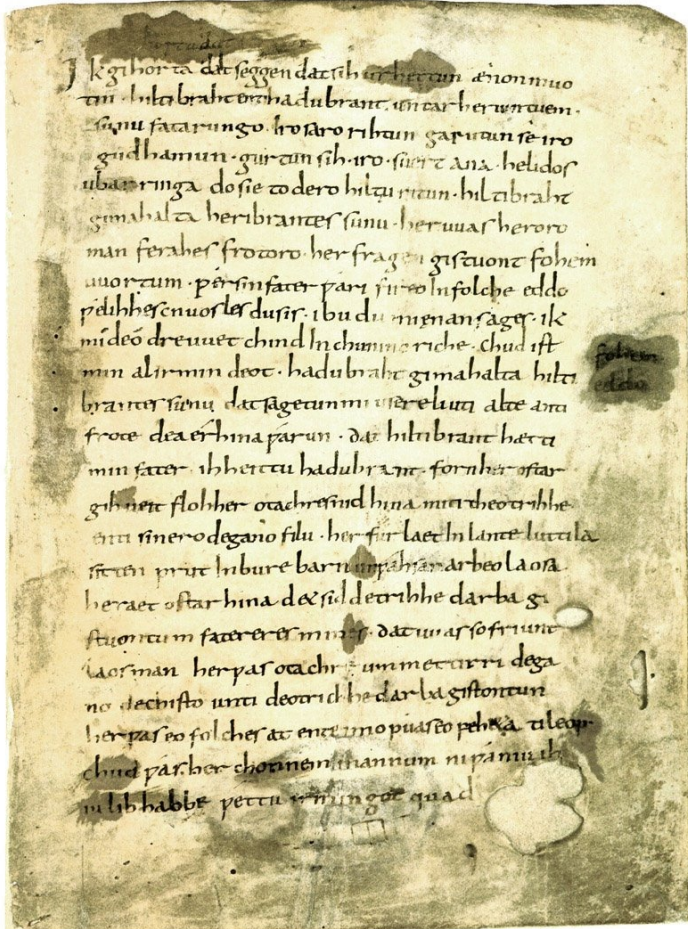 Ik gihorta dat seggen dat sih urhettun ænon muo
tin · hiltibraht enti hadubrant · untar heriun tuem ·
sunu fatarungo · iro saro rihtun garutun se iro
gudhamun · gurtun sih · iro · suert ana · helidos
ubar ringa do sie to dero hiltu ritun · hiltibraht
gimahalta heribrantes sunu · her uuas heroro
man ferahes frotoro · her fragen gistuont fohem
uuortum · ƿer sin fater ƿari fireo In folche eddo
ƿelihhes cnuosles du sis · ibu du mi enan sages · ik
mi deo dre uuet chind In chunincriche · Chud ist
min al irmindeot · hadubraht gimahalta hilti
brantes sunu dat sagetun mi usere liuti alte anti
frote dea érhina ƿarun · dat hiltibrant hætti
min fater · ih heittu hadubrant · forn her ostar
gihueit floh her otachres nid hina miti theotrihhe
enti sinero degano filu · her furlaet In lante luttila
sitten prut In bure barn unƿahsan arbeo laosa
heraet ostar hina det sid detrihhe darba gi
stuontum fatereres mines · dat uuas so friunt
laos man her ƿas otachre ummettirri dega
no dechisto unti deotrichhe darba gistontun
her ƿas eo folches at ente imo ƿuas eo feheta ti leop
chud ƿas her chonnem mannum ni ƿaniu ih
iu lib habbe ƿettu irmingot quad